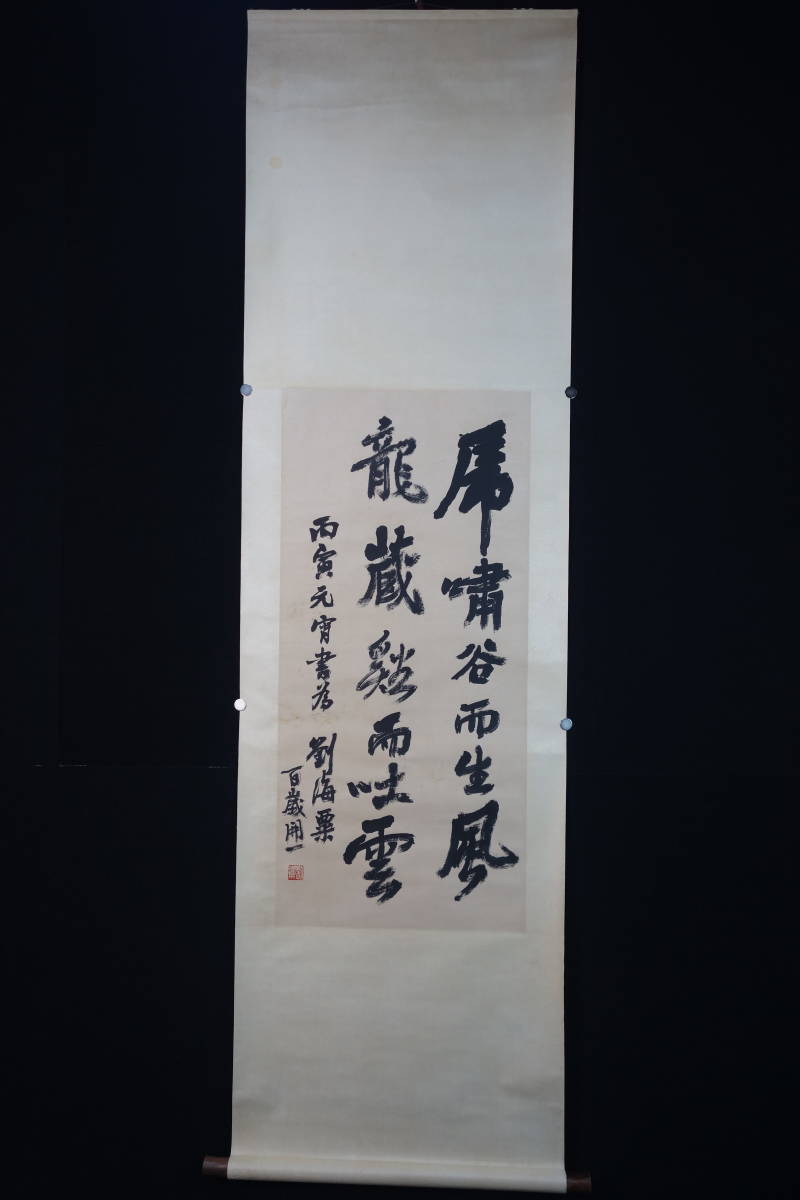 虎嘯谷而生風
龍藏谿而吐雲
丙寅元宵書為
劉海粟
百歲開一